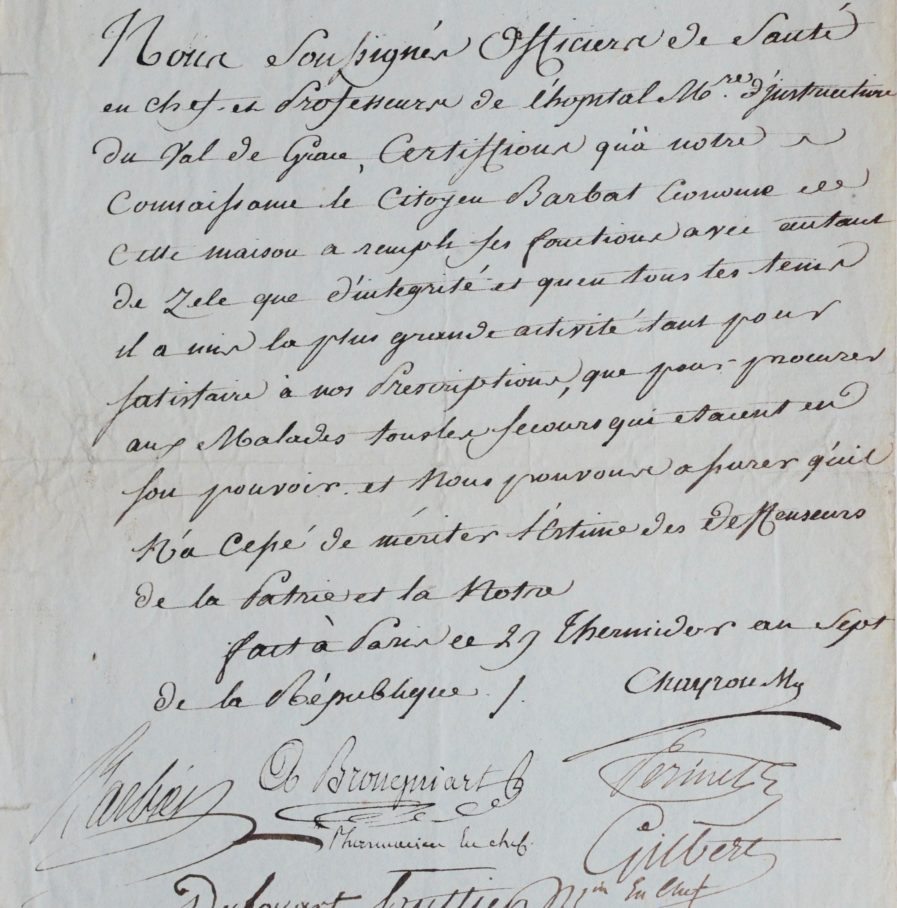 Nous Soussignés Officiers de Santé
en chef et Professeurs de l'hopital Mre. d'instruction
du Val de Grace, Certiffions qu'à notre
Connaissance le Citoyen Barbat Econome de
Cette maison a rempli ses fonctions avec autant
de Zele que d'integrité et qu'en tous les tems
il a mis la plus grande activité tant pour
satisfaire à nos Prescriptions, que pour procurer
aux Malades tous les secours qui etaient en
son pouvoir. et Nous pouvons assurer qu'il
N'a Cessé de mériter l'Estime des Deffenseurs
de la Patrie et la Notre
fait à Paris le 29 Thermidor an Sept
de la République /.
Barbier
Brongniart
Pharmacien En chef.
Gilbert
En Chef